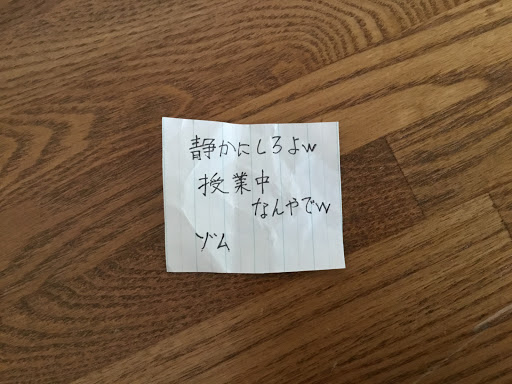 静かにしろよw
授業中
なんやでw
ゾム